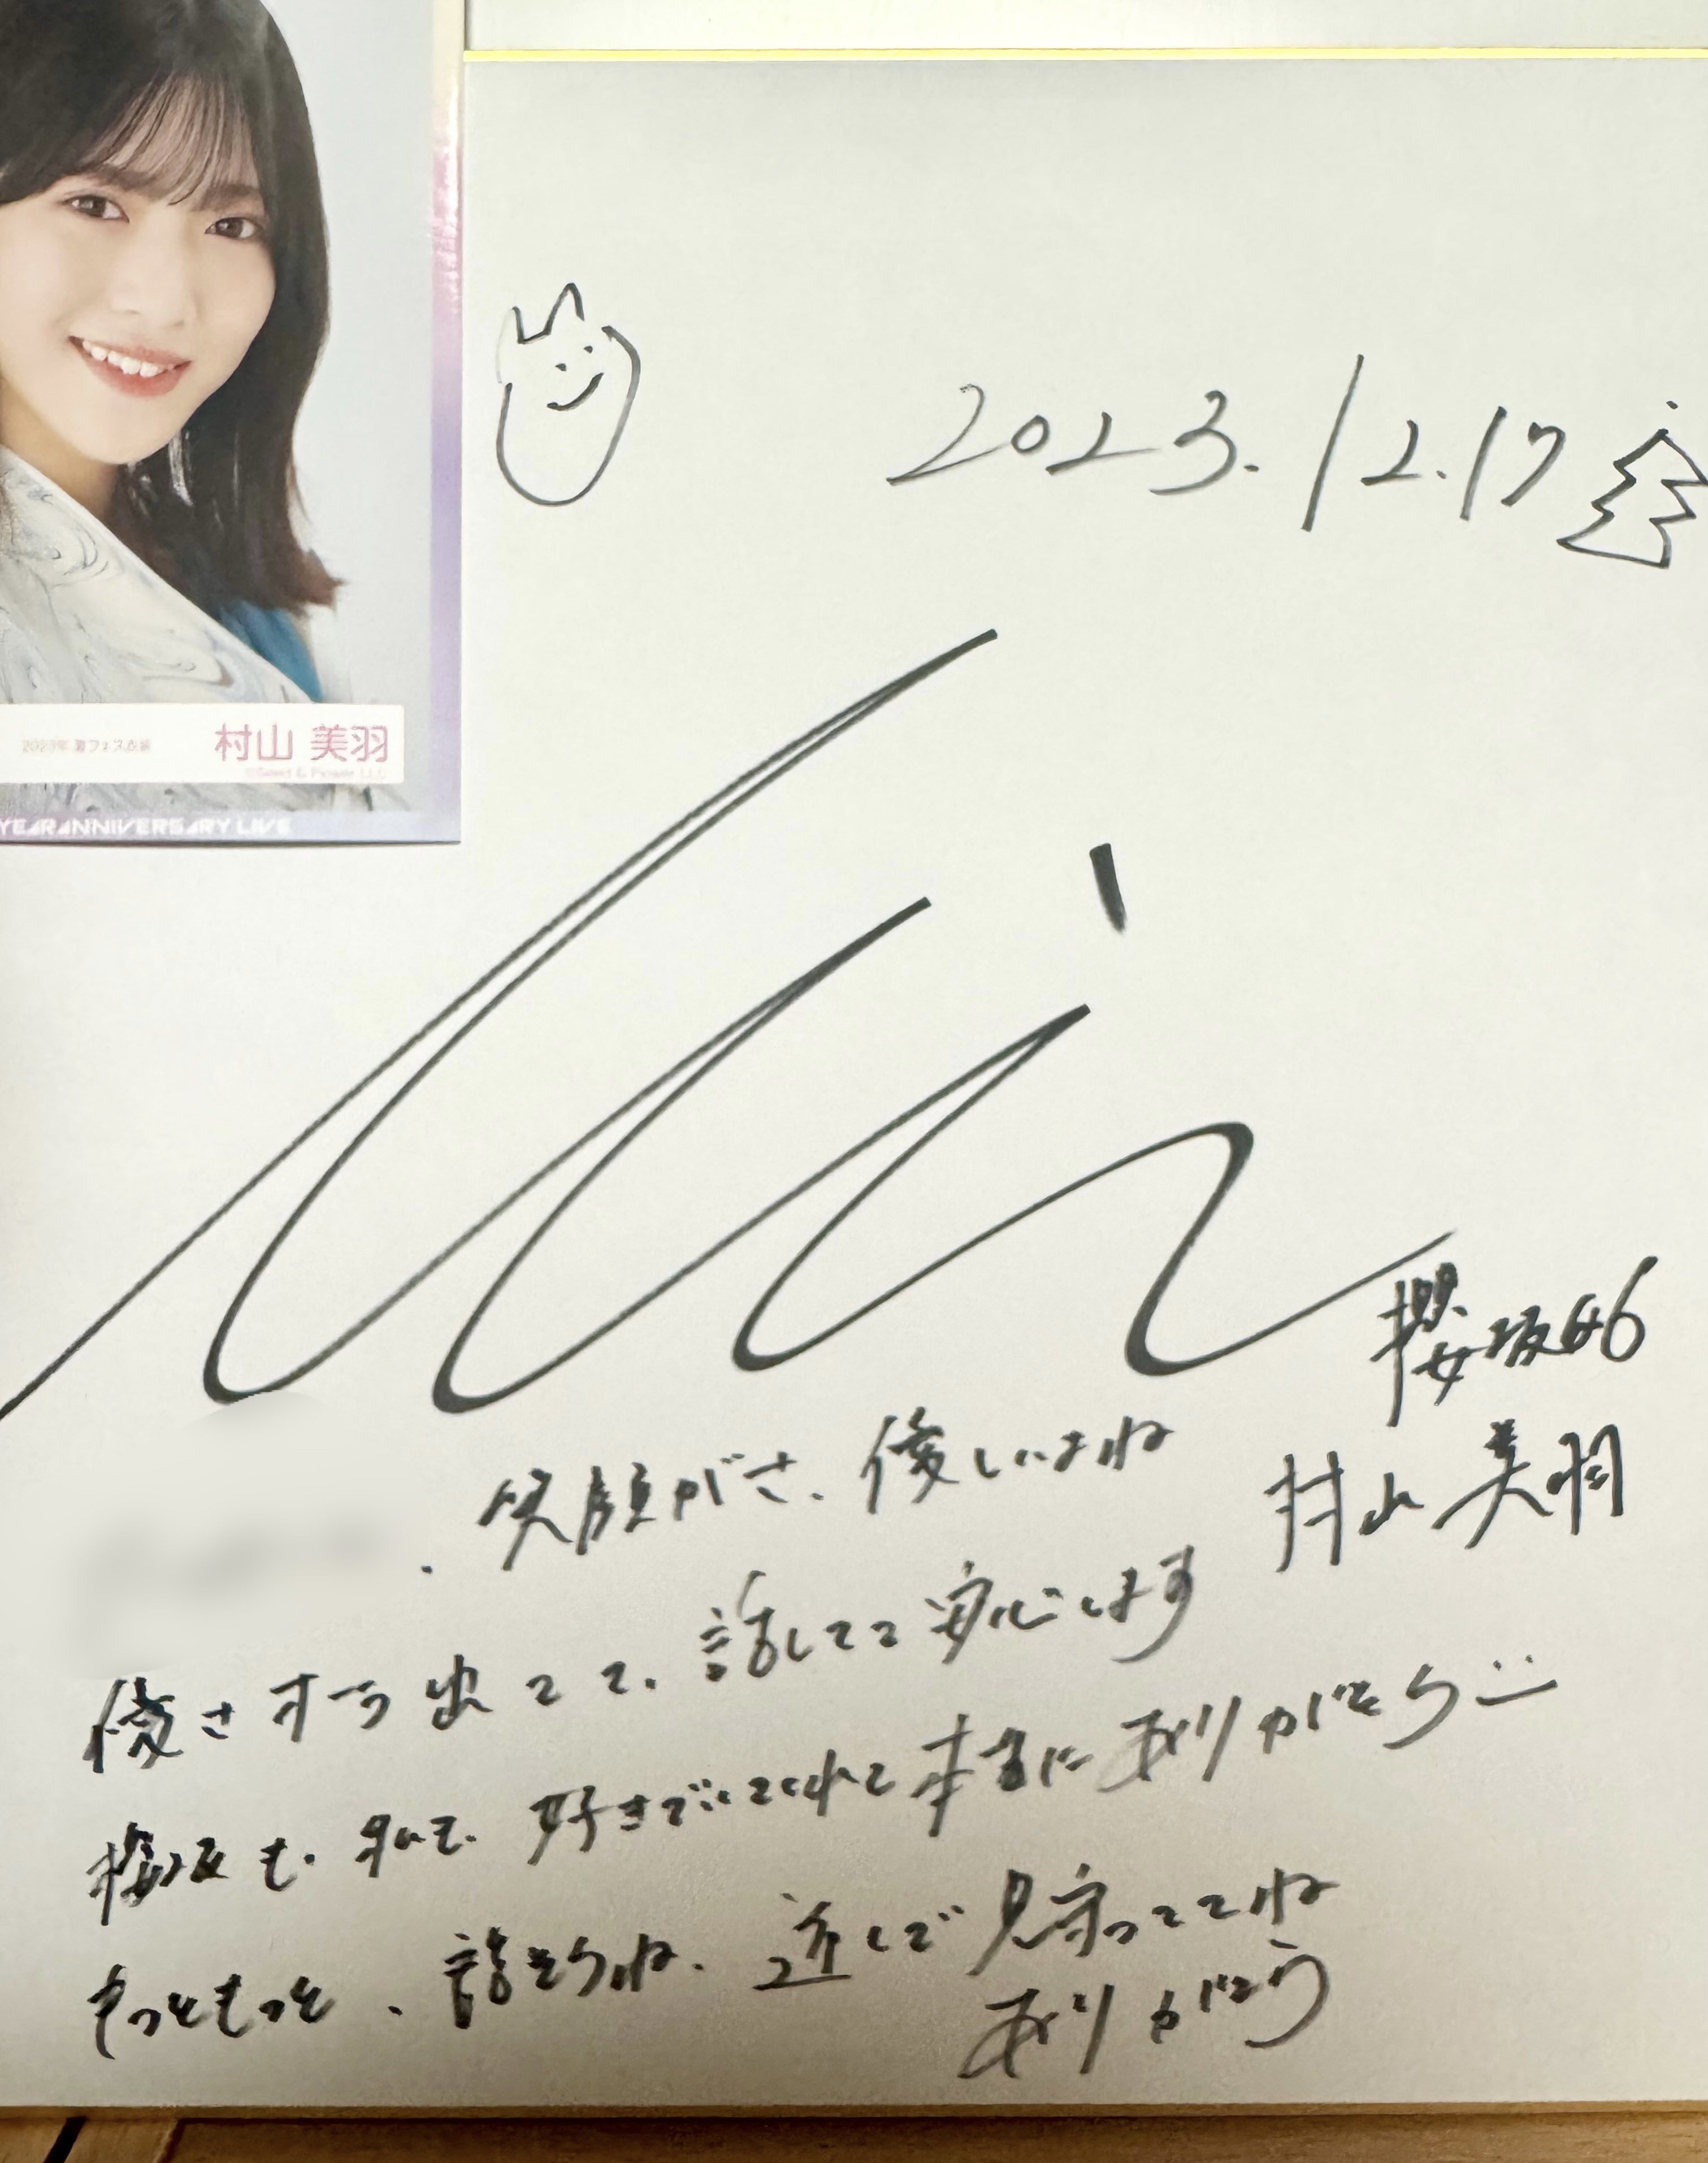 2023年 夏フェス衣装
村山 美羽
©Seed & Flower LLC
YEAR ANNIVERSARY LIVE
2023.12.17
櫻坂46
村山美羽
、笑顔がさ、優しいよね
優さオーラ出てて、話してて安心します
櫻坂も、私も、好きでいてくれて本当にありがとう
もっともっと、話そうね、近くで見守っててね
ありがとう